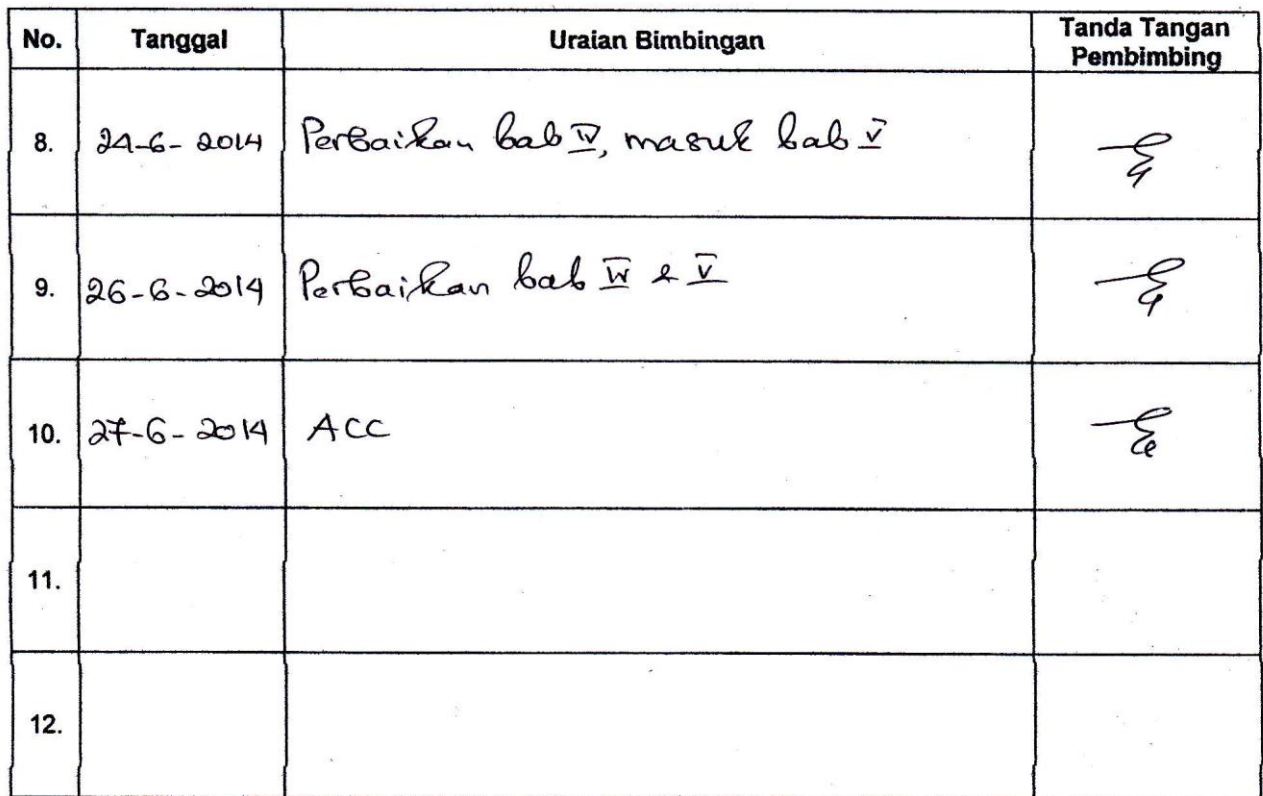 No. Tanggal Uraian Bimbingan Tanda Tangan Pembimbing
8. 24-6-2014 Perbaikan bab IV, masuk bab V
9. 26-6-2014 Perbaikan bab IV & V
10. 27-6-2014 ACC
11.
12.